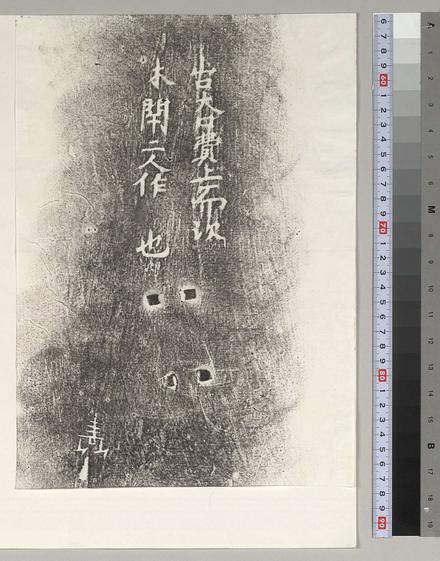 山口大口費上而次
木閇二人作也
6 7 8 9 60 1 2 3 4 5 6 7 8 9 70 1 2 3 4 5 6 7 8 9 80 1 2 3 4 5 6 7 8 9 90
A 1 2 3 4 5 6 M 8 9 10 11 12 13 14 15 B 17 18 19